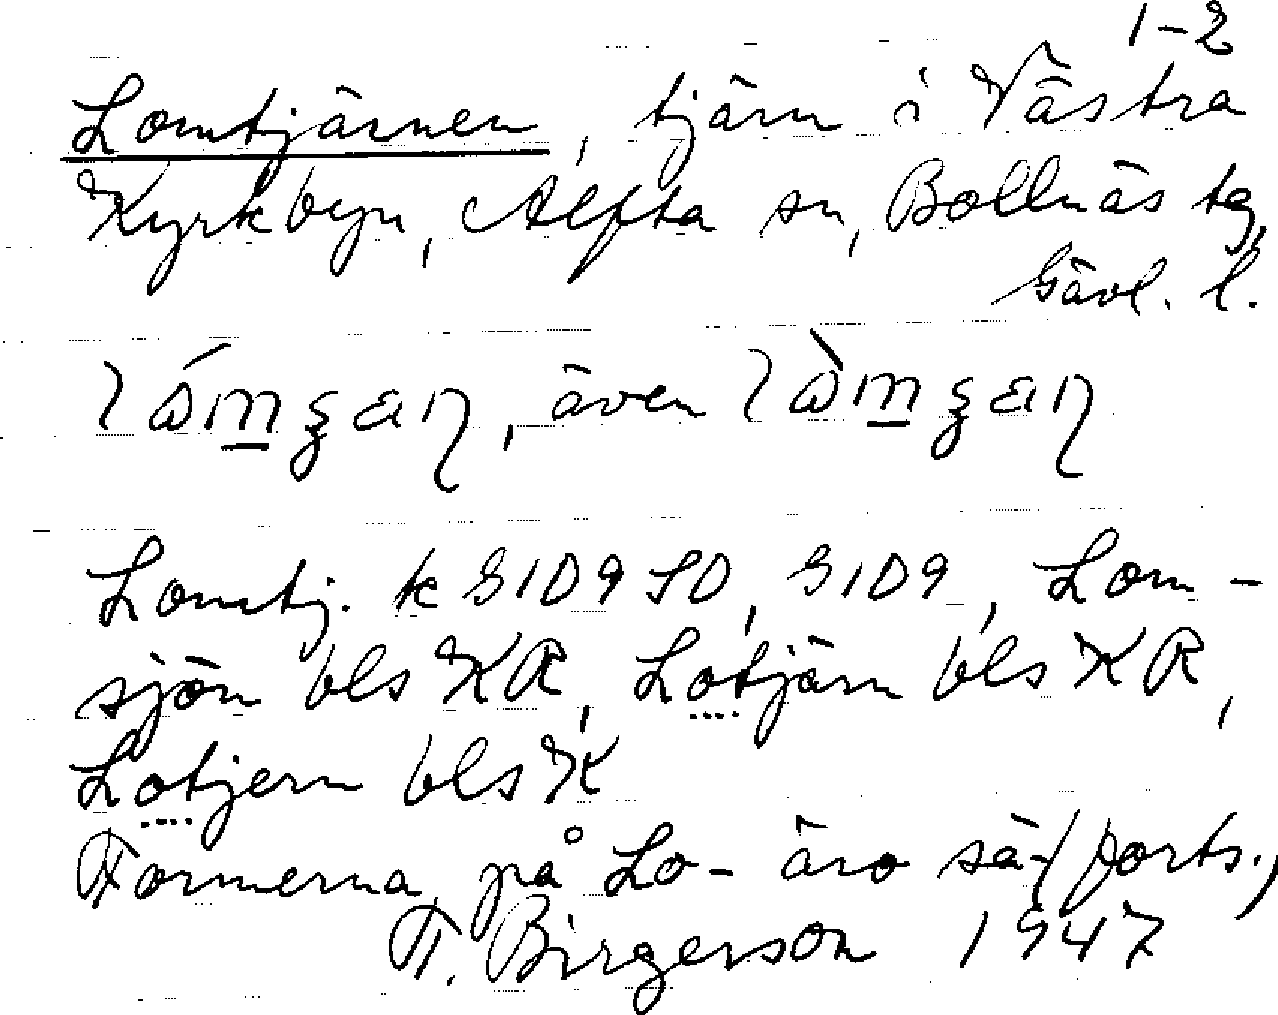 1-2
Lomtjärnen, tjärn i Västra
Kyrkbyn, Alfta sn, Bollnäs tg,
Gävl. l.
även
Lomtj. k GIDQ SO, GIDQ, Lom-
sjön bls KR, Lotjärn bls KR,
Lotjern bls K
Formerna på Lo- äro sä- (forts.)
F. Birgerson 1947